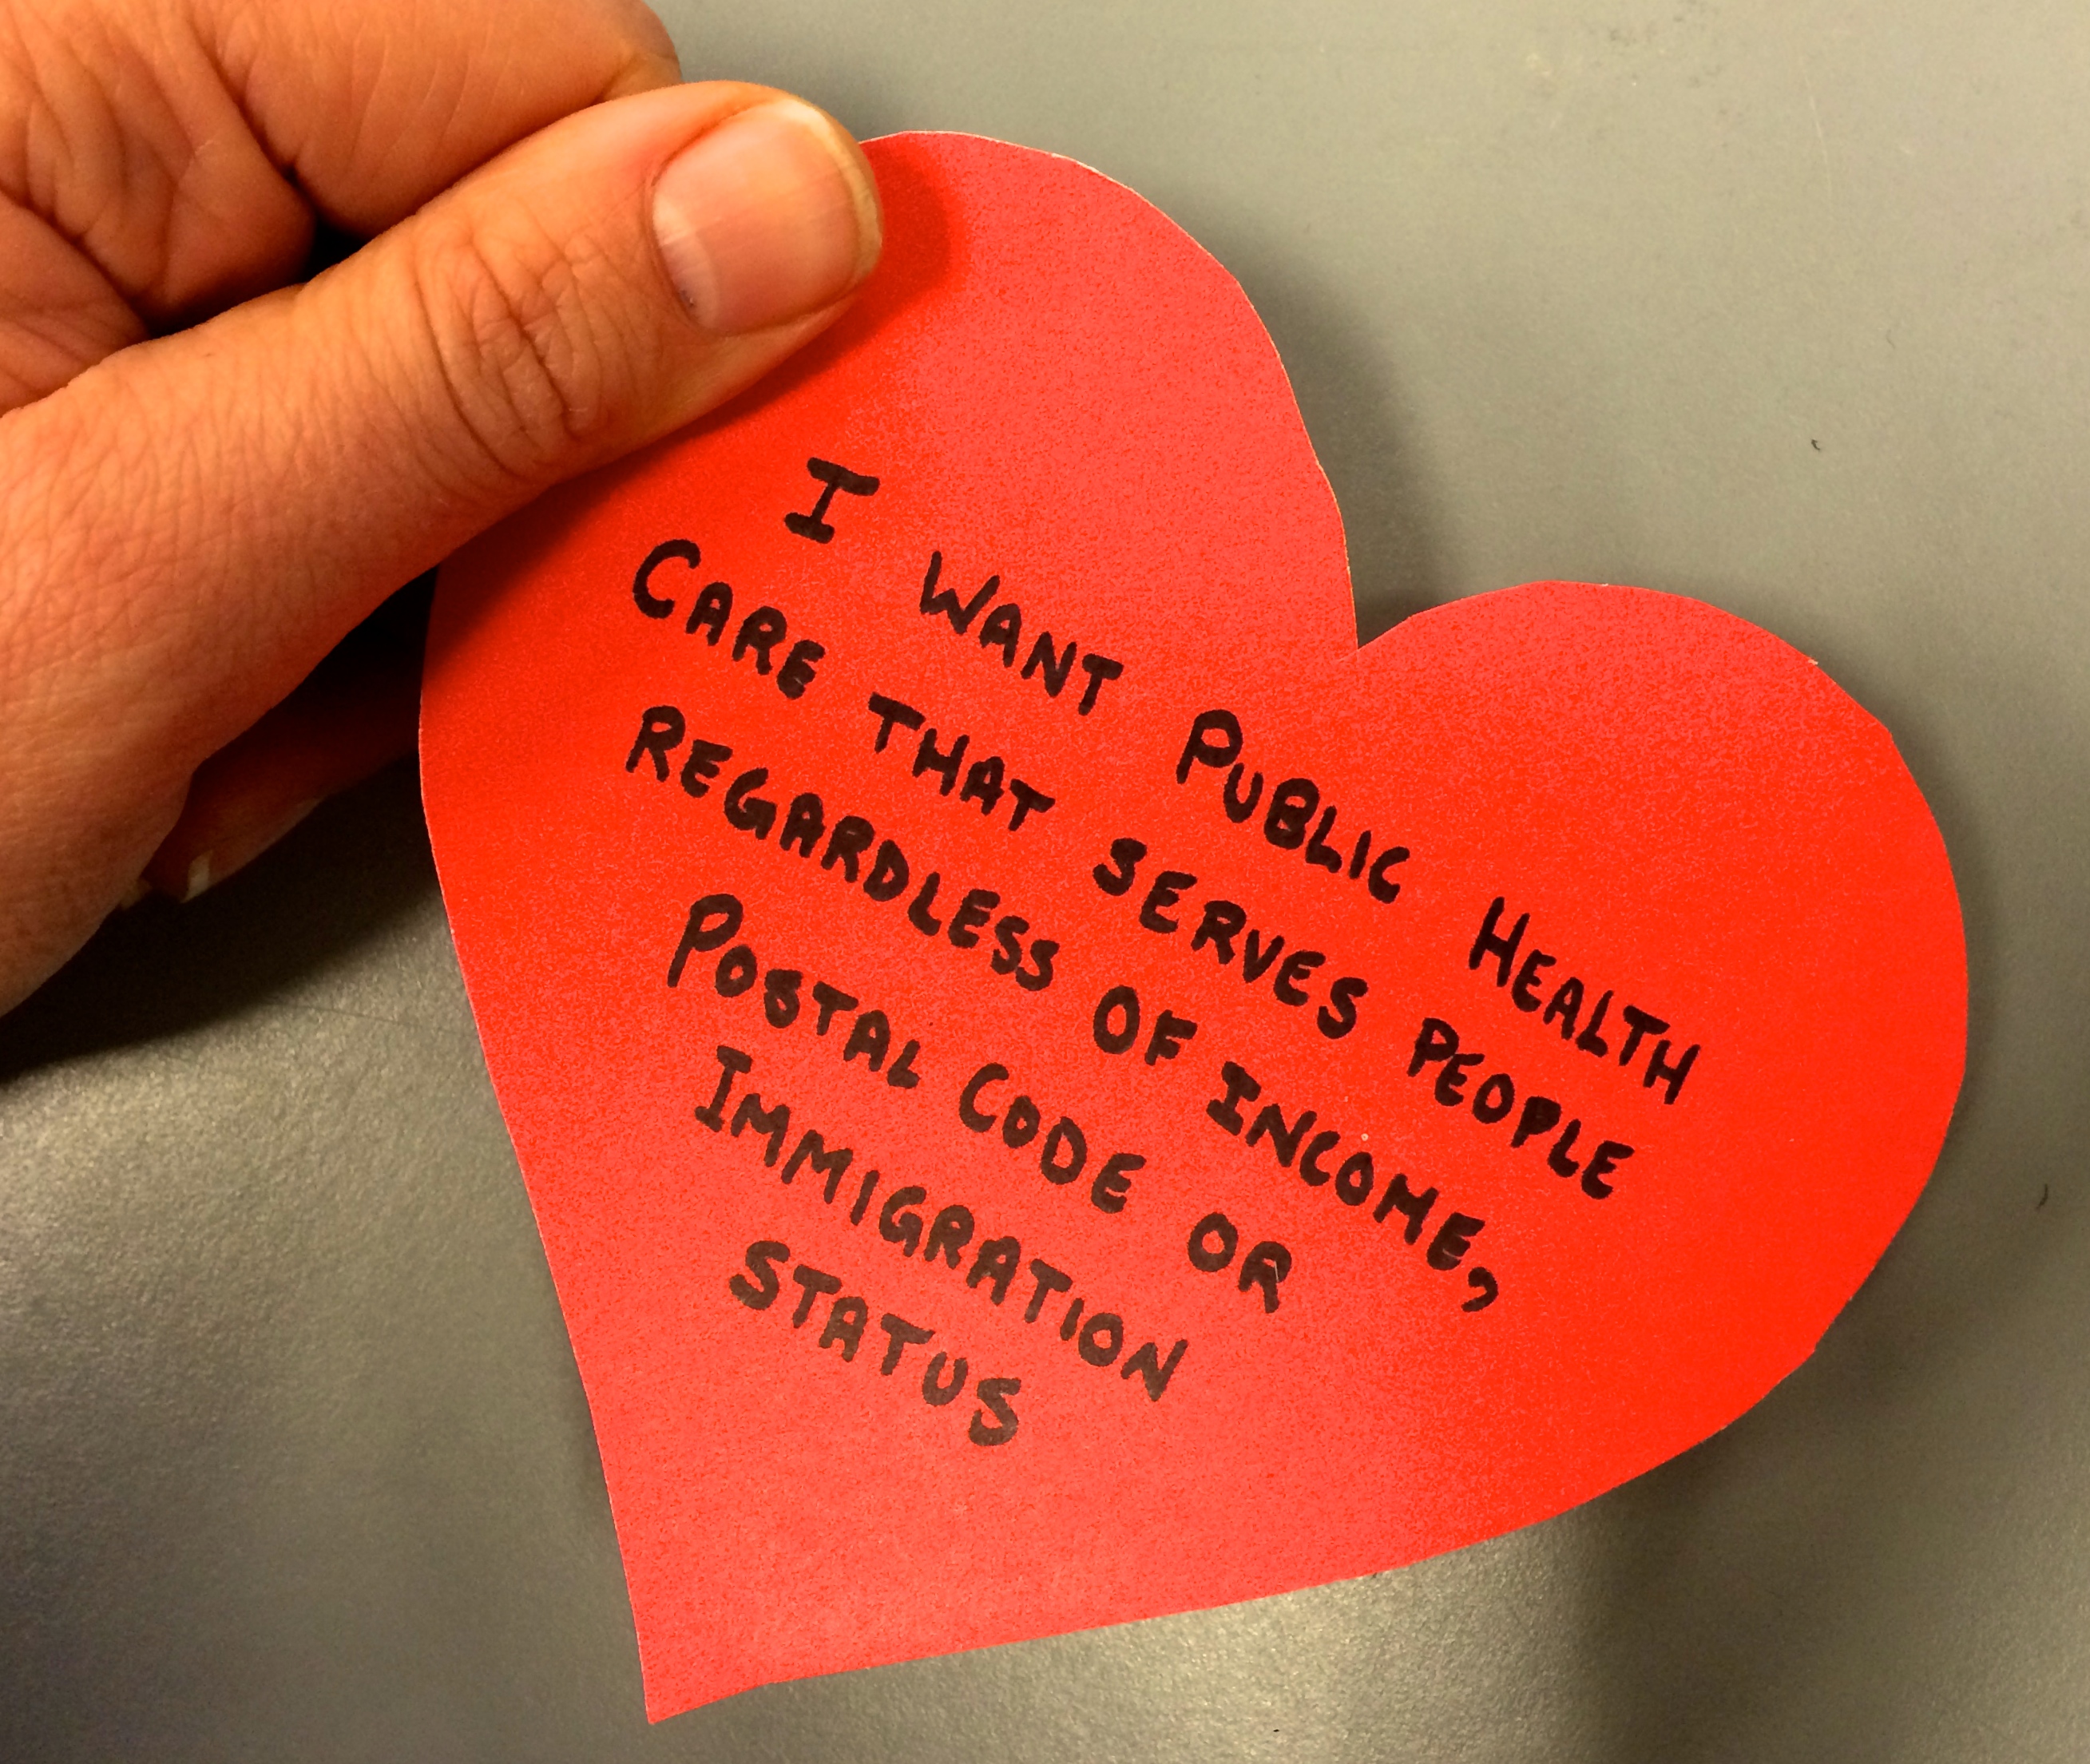 I WANT PUBLIC HEALTH
CARE THAT SERVES PEOPLE
REGARDLESS OF INCOME,
POSTAL CODE OR
IMMIGRATION
STATUS